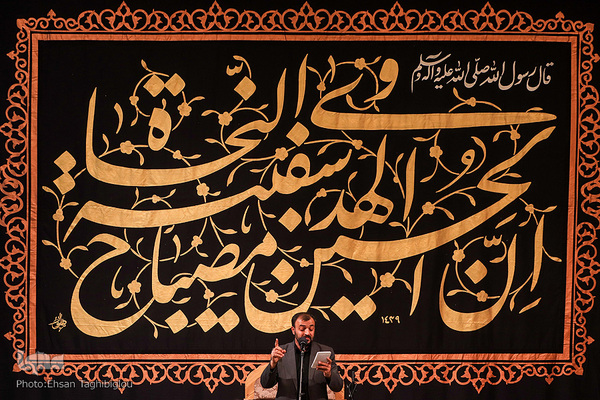 قال رسول الله صلی الله علیه و آله وسلم
إنّ الحسین مصباح الهدی و سفینة النّجاة
۱۴۳۹
Photo:Ehsan Taghibiglou